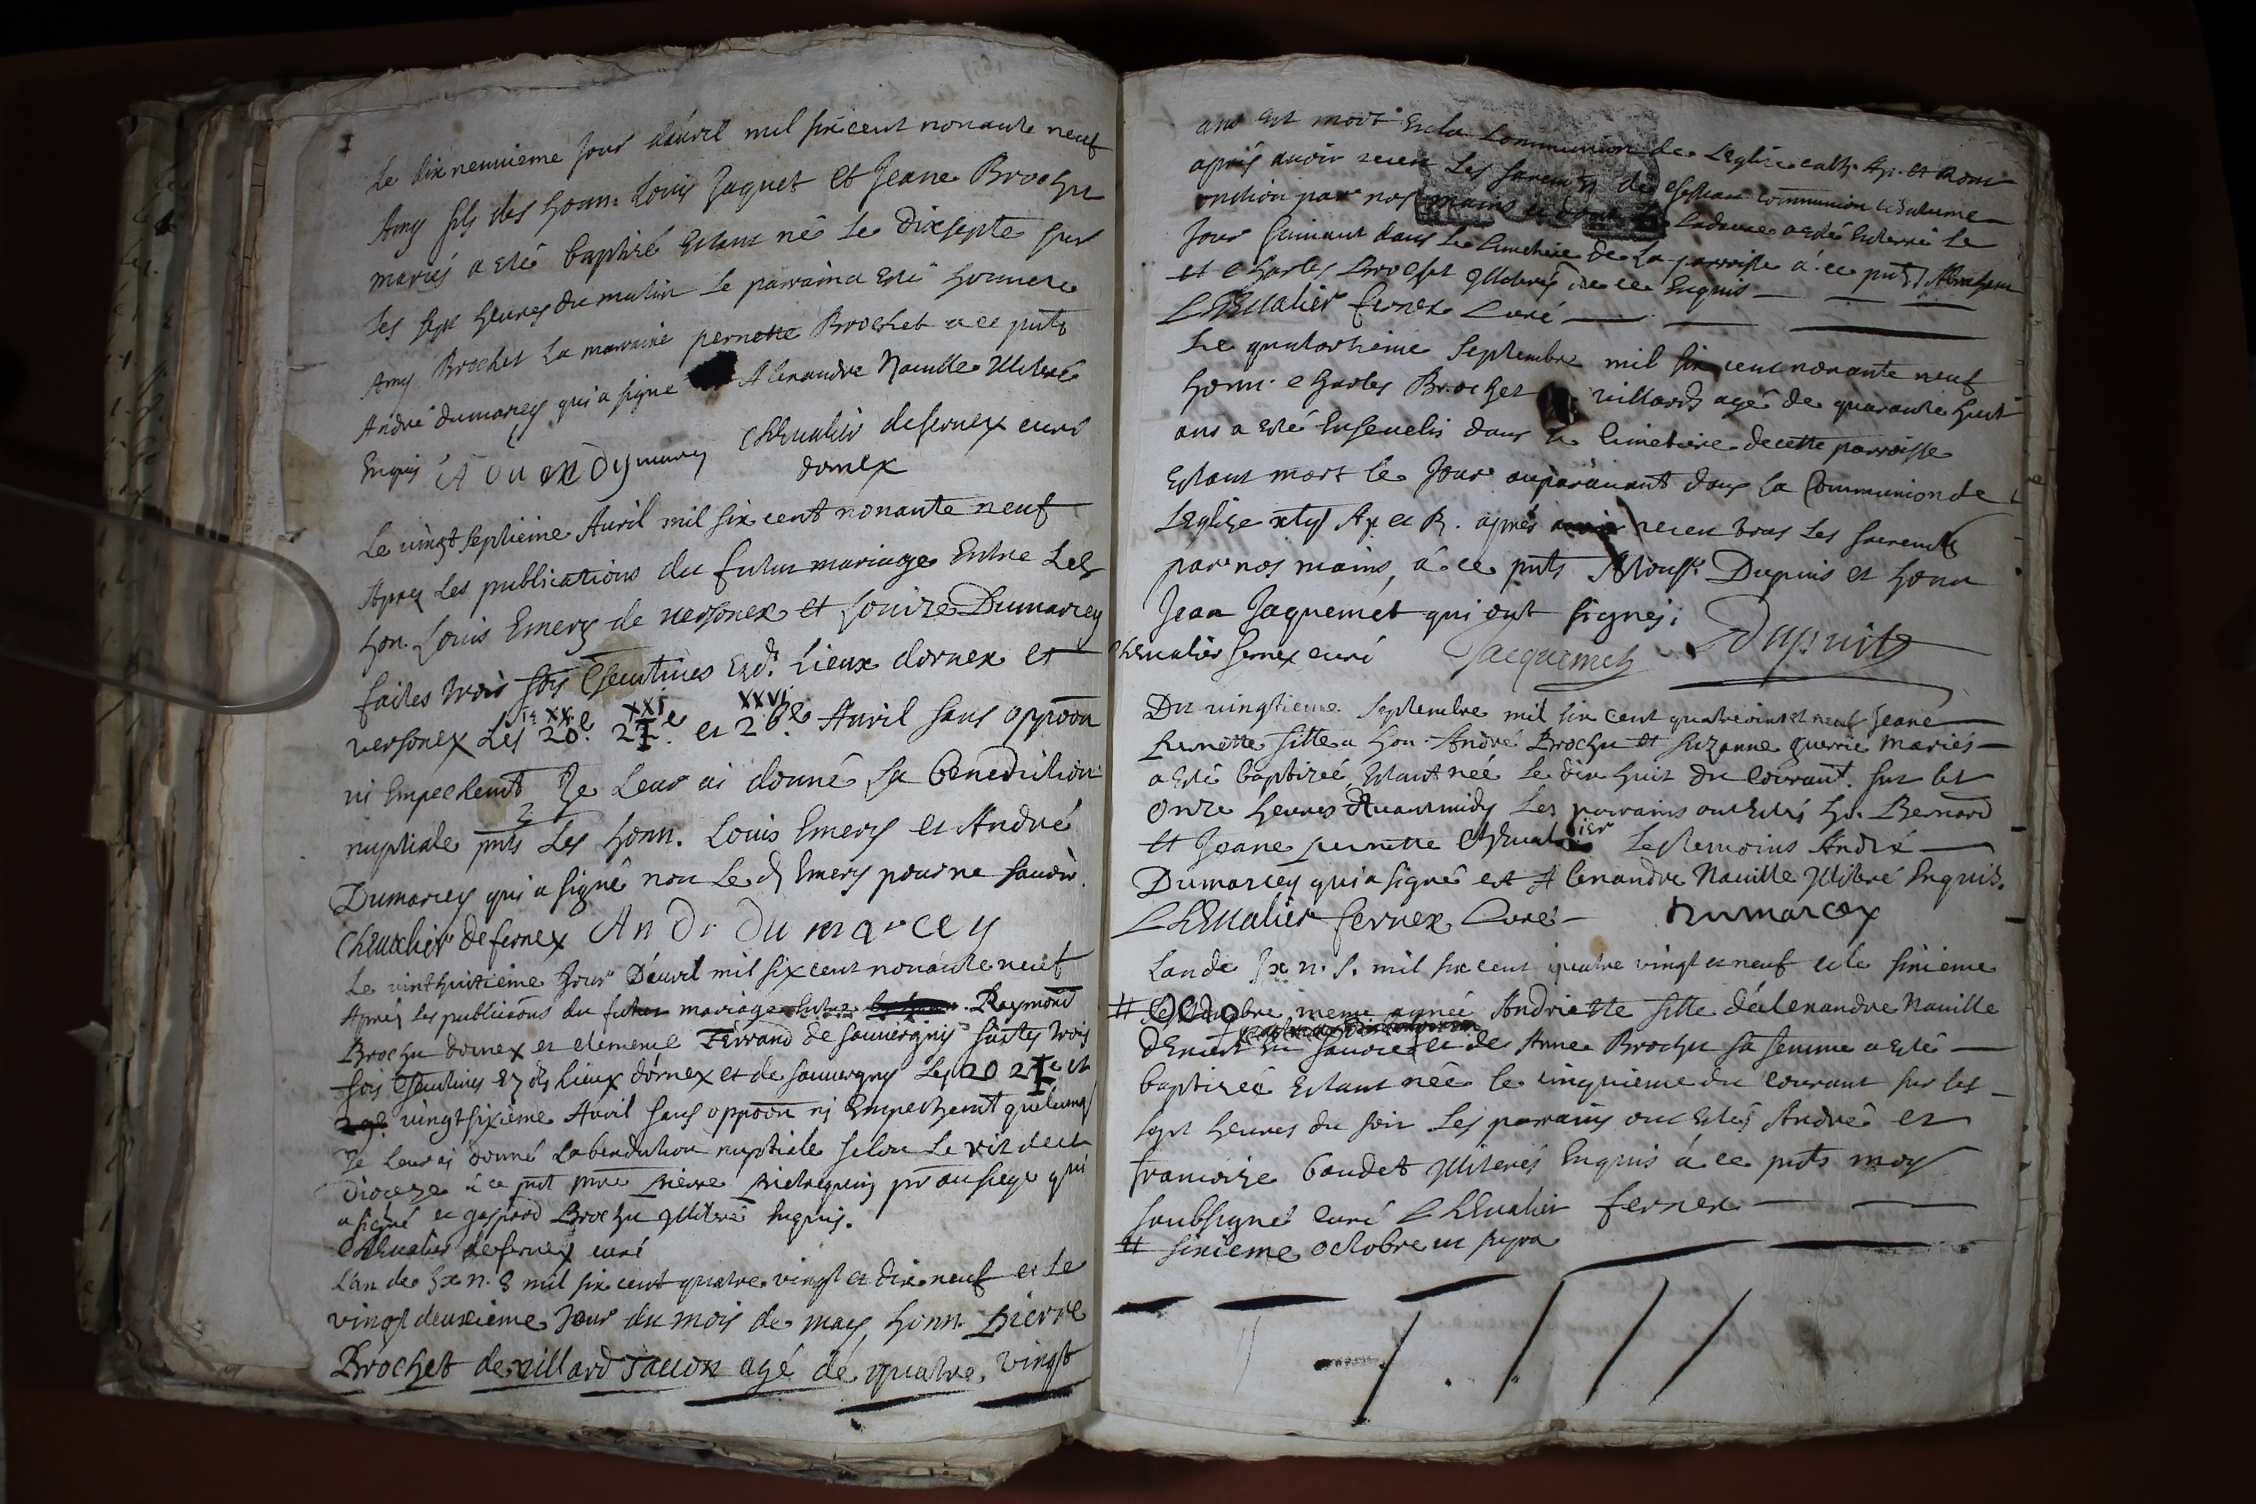 Le dix neuuieme Jour dáuril mil six cent nonante neuf
Amy fils des honn. Louis Jaquet et Jeane Brochu
mariés a esté baptizé estant né le dixsepte sur
les sept heures du matin le parrain a esté honnete
Amy Brochet la marraine pernette Brochet a ce pnts
André dumarcey qui a signe Alexandre Nauille Illiteré
Enquis Chevalier defernex curé
dornex
Le vingt septieme Auril mil six cent nonante neuf
Apres Les publications du futur mariage Entre Les
hon. Louis Emery de uersonex et Louize Dumarcey
faites trois fois Esd. Lieux dornex et
14 XX XXI XXVI
versonex Les 20e. 21e. et 26e. Auril sans oppoön
ni Empechemt Je Leur ai donné la benediction
nuptiale pnts Les honn. Louis Emery et André
Dumarcey qui a signé non Le d Emery pour ne sauoir.
Chevalier de fernex Andr dumarcey
Le vinthuitieme Jour Dáuril mil six cent nonante neuf
Apres les publicaöns du futur mariage Entre Raymond
Brochu dornex et clemence Ferrand de sauuergny faites trois
fois lieux dórnex et de sauuergny Les 20 21e et
vingtsixième Auril sans oppoön ni Empechemt quelconq
Je leur ai donné La benediction nuptiale selon Le rit de ce
dioceze à ce pnt Pierre qui
a signé et gaspard Brochu Illiteré Enquis.
Chevalier defernex curé
L'an de n. S mil six cent quatre vingt et dix neuf et Le
vingt deuxieme Jour du mois de may honn. Pierre
Brochet de villard agé de quatre vingt
ans est mort En la Communion de L'Eglise cath. Ap. et Rom
aprés auoir receu Les saremts de communion
onction par nos mains Cadaure a esté Enterré le
Jour suiuant dans Le Cimetiere de La parroisse á ce pnts
et Charles Brochet Illiterés de ce Enquis
Chevalier fernex Curé
Le quatorhieme septembre mil six cent nonante neuf
honn. Charles Brochet villard agé de quarante huit
ans a esté Enseuelis dans le Cimetiere de cette parroisse
estant mort le Jour auparáuant dans La Communion de
LEglize Ap. et R. aprés receu tous Les saremts
par nos mains, á ce pnts Dupuis et honn
Jean Jaquemet qui ont signés;
chevalier fernex curé Jacquemet Dupuits
Du uingtieme septembre mil six cent quatre vint et neuf Jeane
Pernette fille a hon. André Brochu et suzanne guerrie mariés
a esté baptizée, Estant née Le dix huit du Courant. sur les
onze heures dauantmidy Les parrains ont Estés ho. Bernard
et Jeane pernette Chevalier Les temoins André
Dumarcey qui a signé et Alexandre Nauille Illiteré Enquis.
Chevalier fernex Curé Dumarcey
Lan de n. S. mil six cent quatre vingt et neuf et le sixieme
# octobre même année Andriette fille dálexandre Nauille
en sauoie et de Anne Brochu sa femme a esté
baptizée Estant née le cinquieme du Courant sur les
sept heures du soir Les parrains ont Estés André et
francoize baudet Illiterés Enquis á ce pnts moy
soubsigné curé Chevalier fernex
# sixieme octobre ut supra